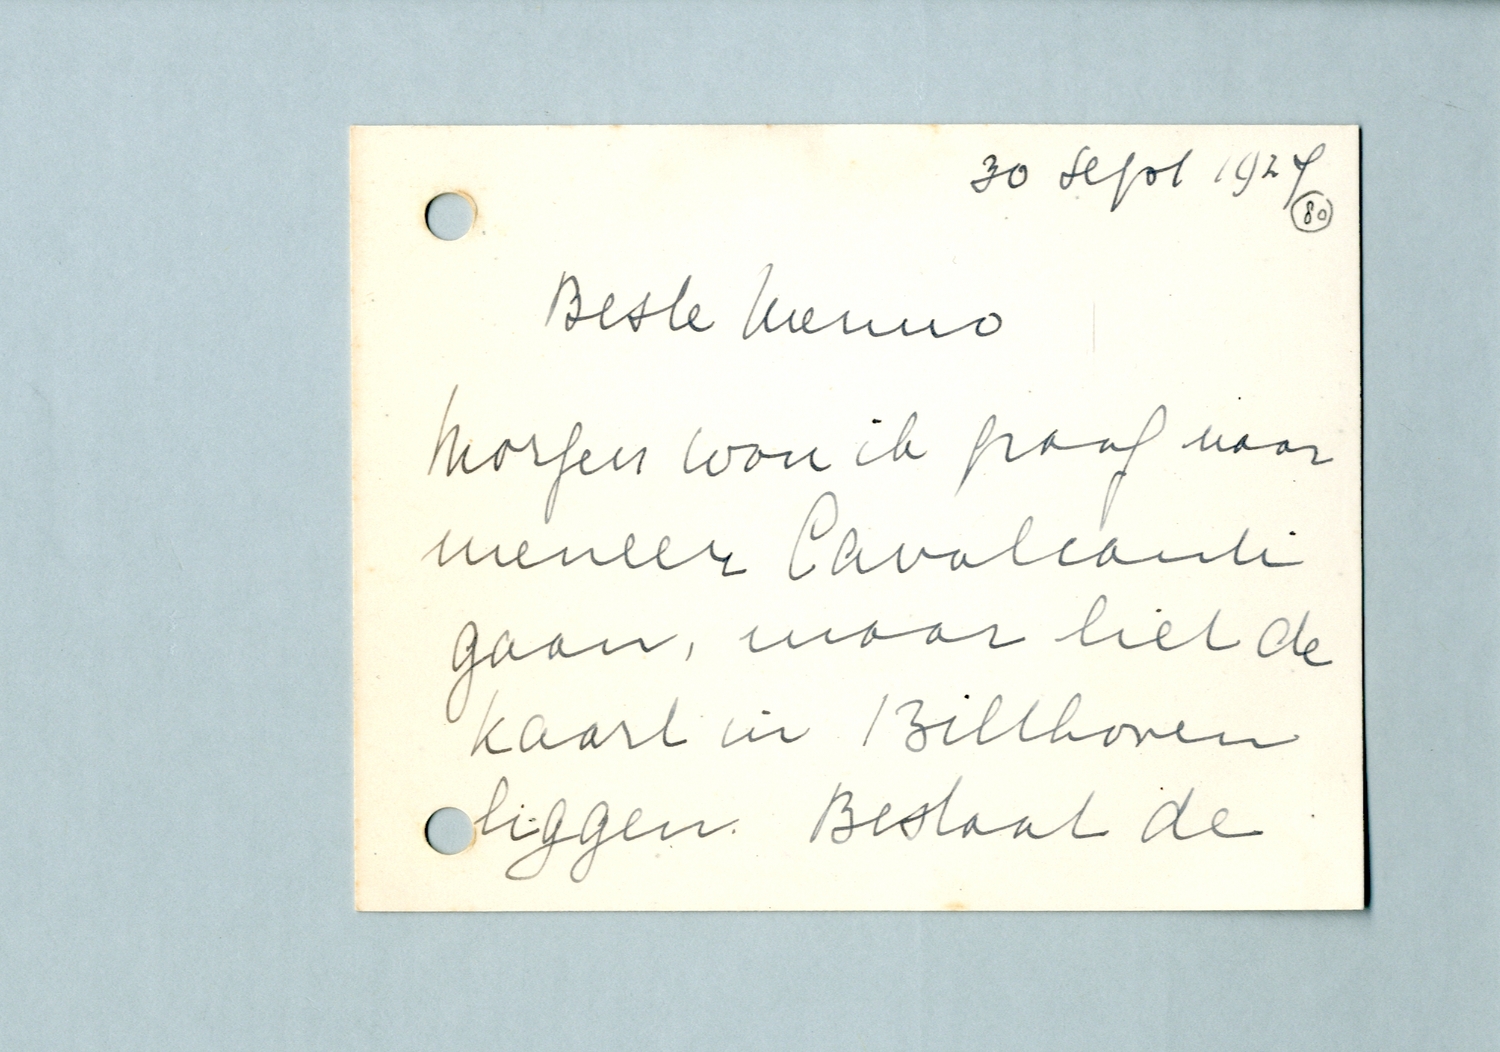 30 Sept 1927
80
Beste Menno
Morgen wou ik graag naar
meneer Cavalcanti
gaan, maar liet de
kaart in Bilthoven
liggen. Bestaat de